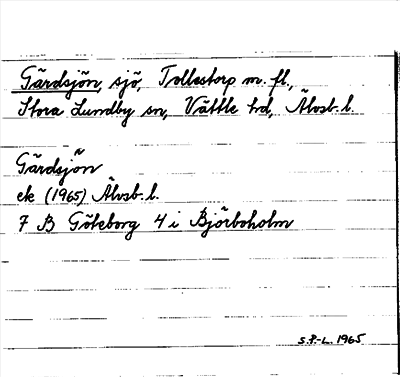 Gärdsjön, sjö, Tollestorp m. fl.,
Stora Lundby sn, Vättle hd, Älvsb. l.
Gärdsjön
ek (1965) Älvsb. l.
7 B Göteborg 4 i Björboholm
S.P-L. 1965